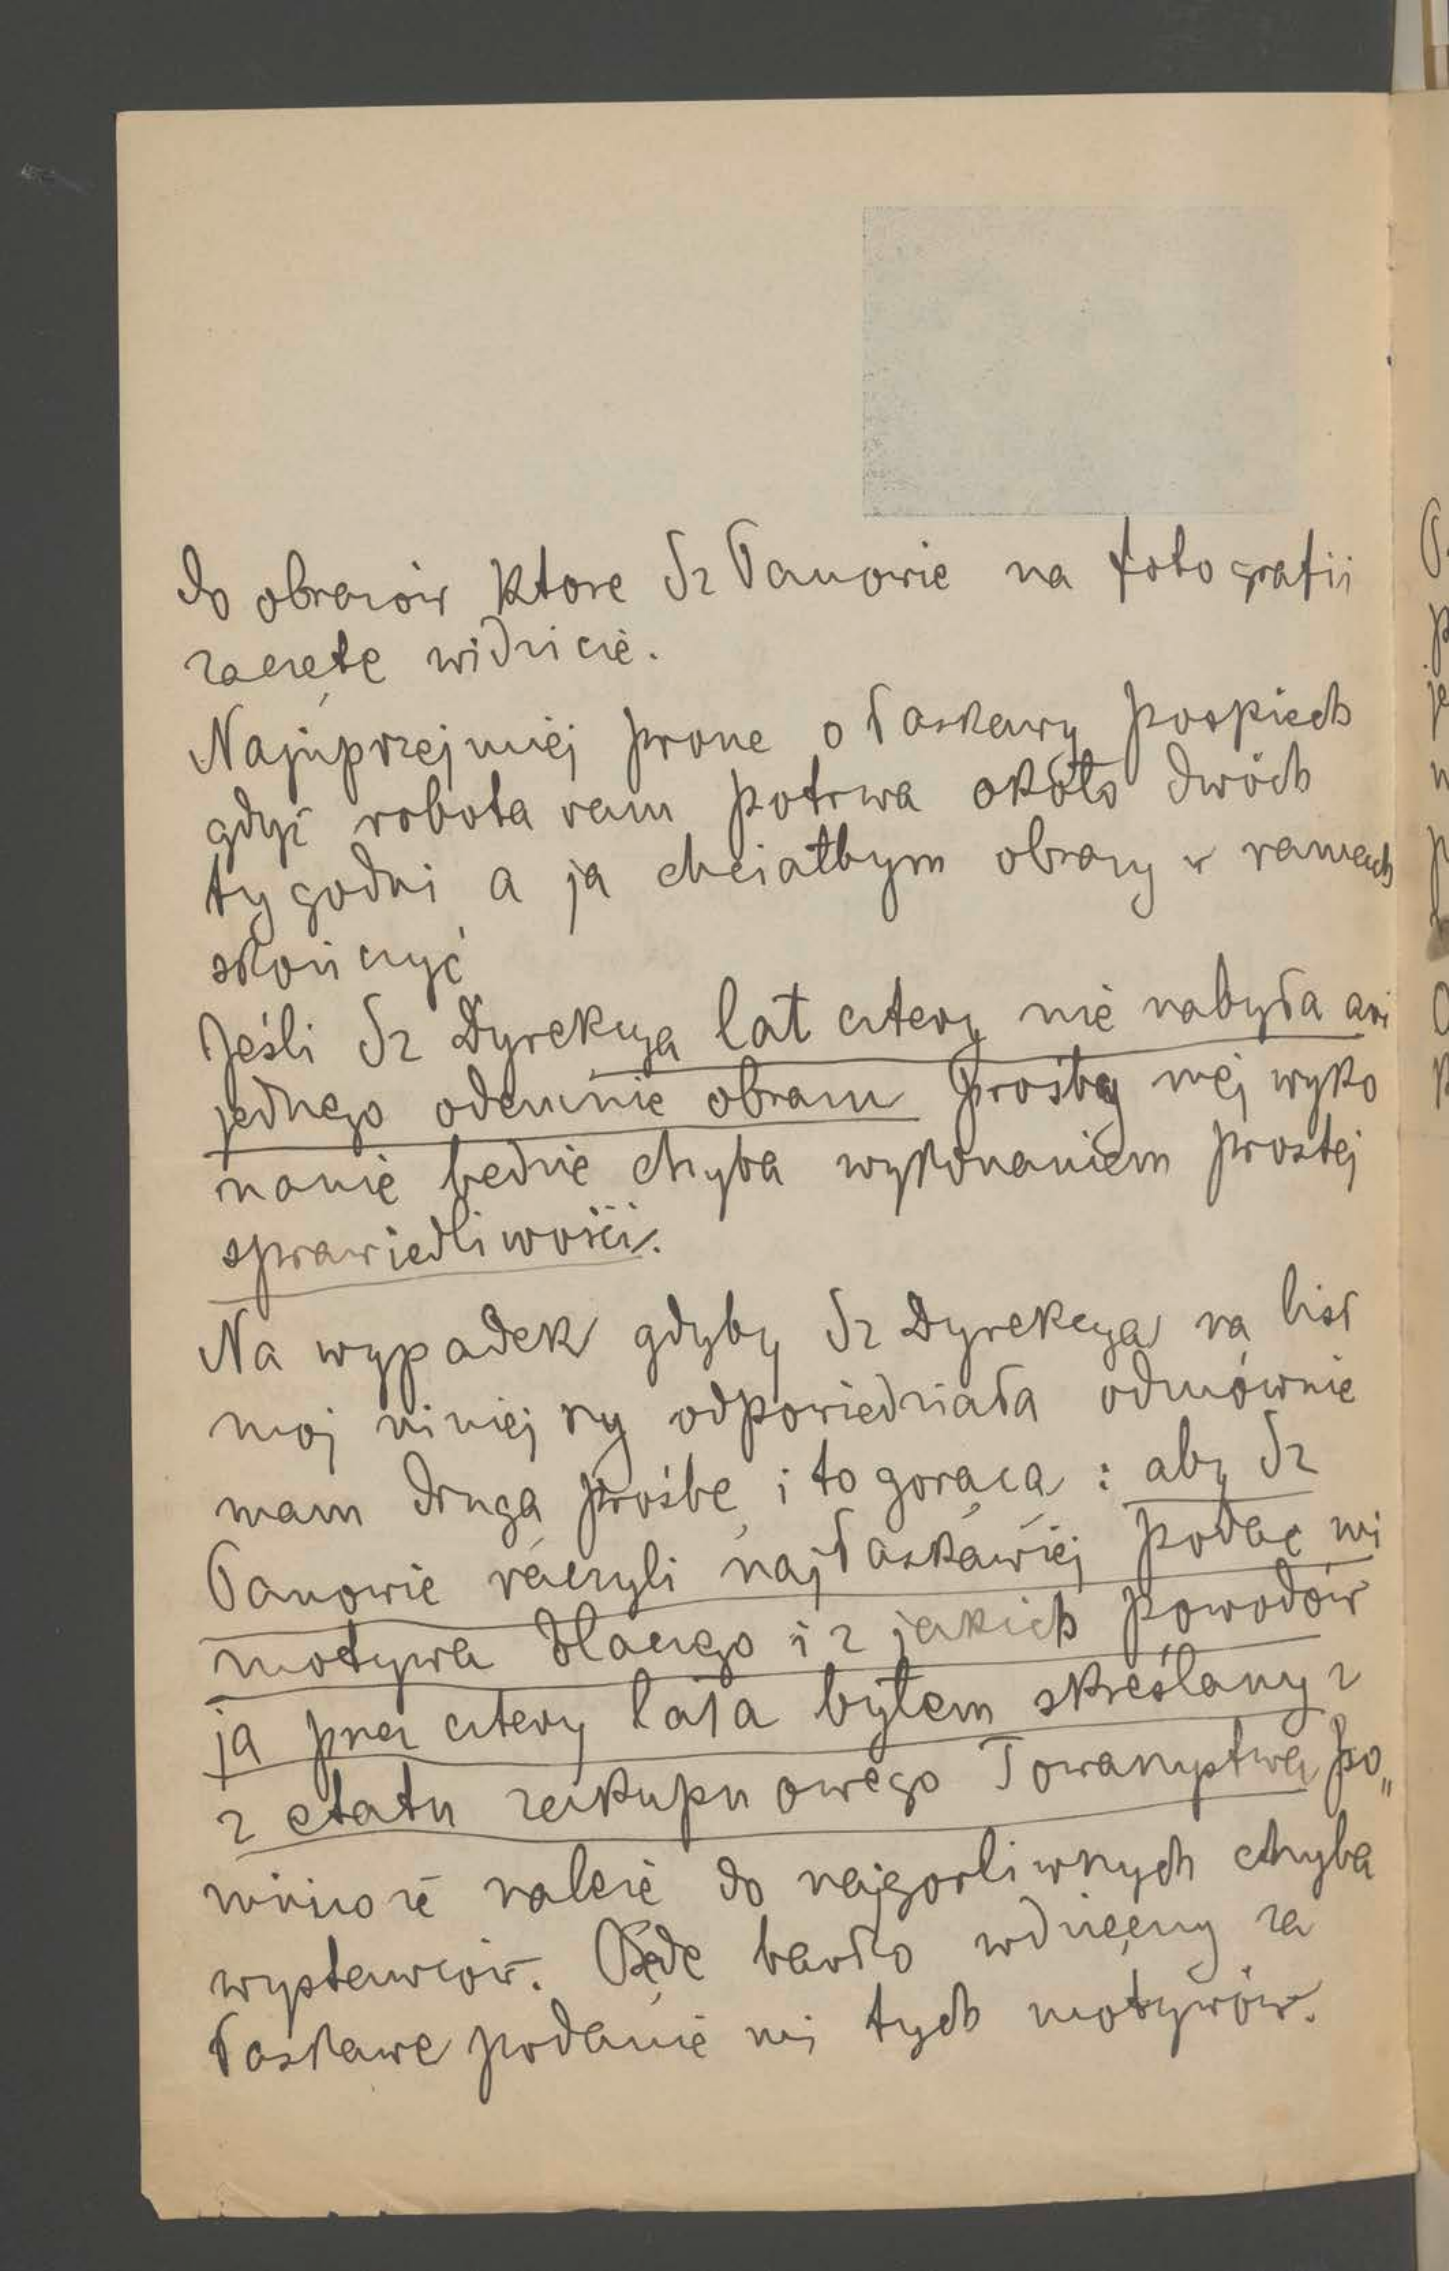 do obrazów ktore Sz Panowie na fotografii
zaczęte widzicie.
Najuprzejmiej proszę o łaskawy pospiech
gdyż robota ram potrwa około dwóch
tygodni a ja chciałbym obrazy w ramach
skończyć
Jeśli Sz Dyrekcya lat cztery nie nabyła ani
jednego odemnie obrazu prośby mej wyko
nanie będzie chyba wykonaniem prostej
sprawiedliwości.
Na wypadek gdyby Sz Dyrekcya na list
moj niniejszy odpowiedziała odmównie
mam drugą prośbę i to gorącą : aby Sz
Panowie raczyli najłaskawiej podać mi
motywa dlaczego i z jakich powodów
ja przez cztery lata byłem skreślany z
z etatu zakupu owego Towarzystwa po„
mimo że należę do najgorliwszych chyba
wystawców. Będę bardzo wdzięczny za
łaskawe podanie mi tych motywów.